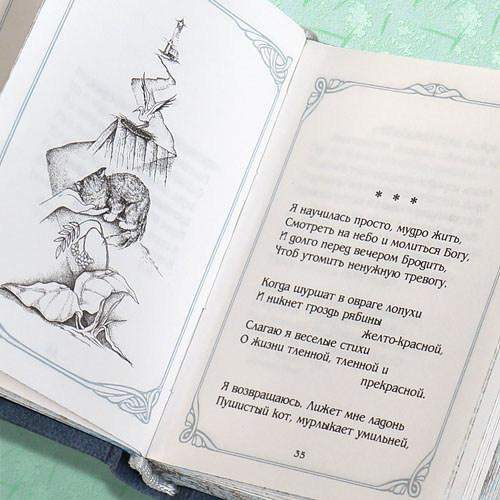 * * *
Я научилась просто, мудро жить,
Смотреть на небо и молиться Богу,
И долго перед вечером бродить,
Чтоб утомить ненужную тревогу.
Когда шуршат в овраге лопухи
И никнет гроздь рябины
желто-красной,
Слагаю я веселые стихи
О жизни тленной, тленной и
прекрасной.
Я возвращаюсь. Лижет мне ладонь
Пушистый кот, мурлыкает умильней,
35